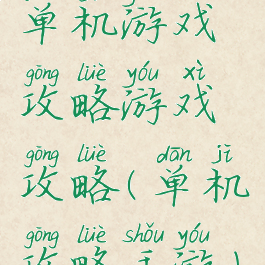 单机游戏
gōng lüè yóu xì
攻略游戏
gōng lüè dān jī
攻略(单机
gōng lüè shǒu yóu
攻略手游)